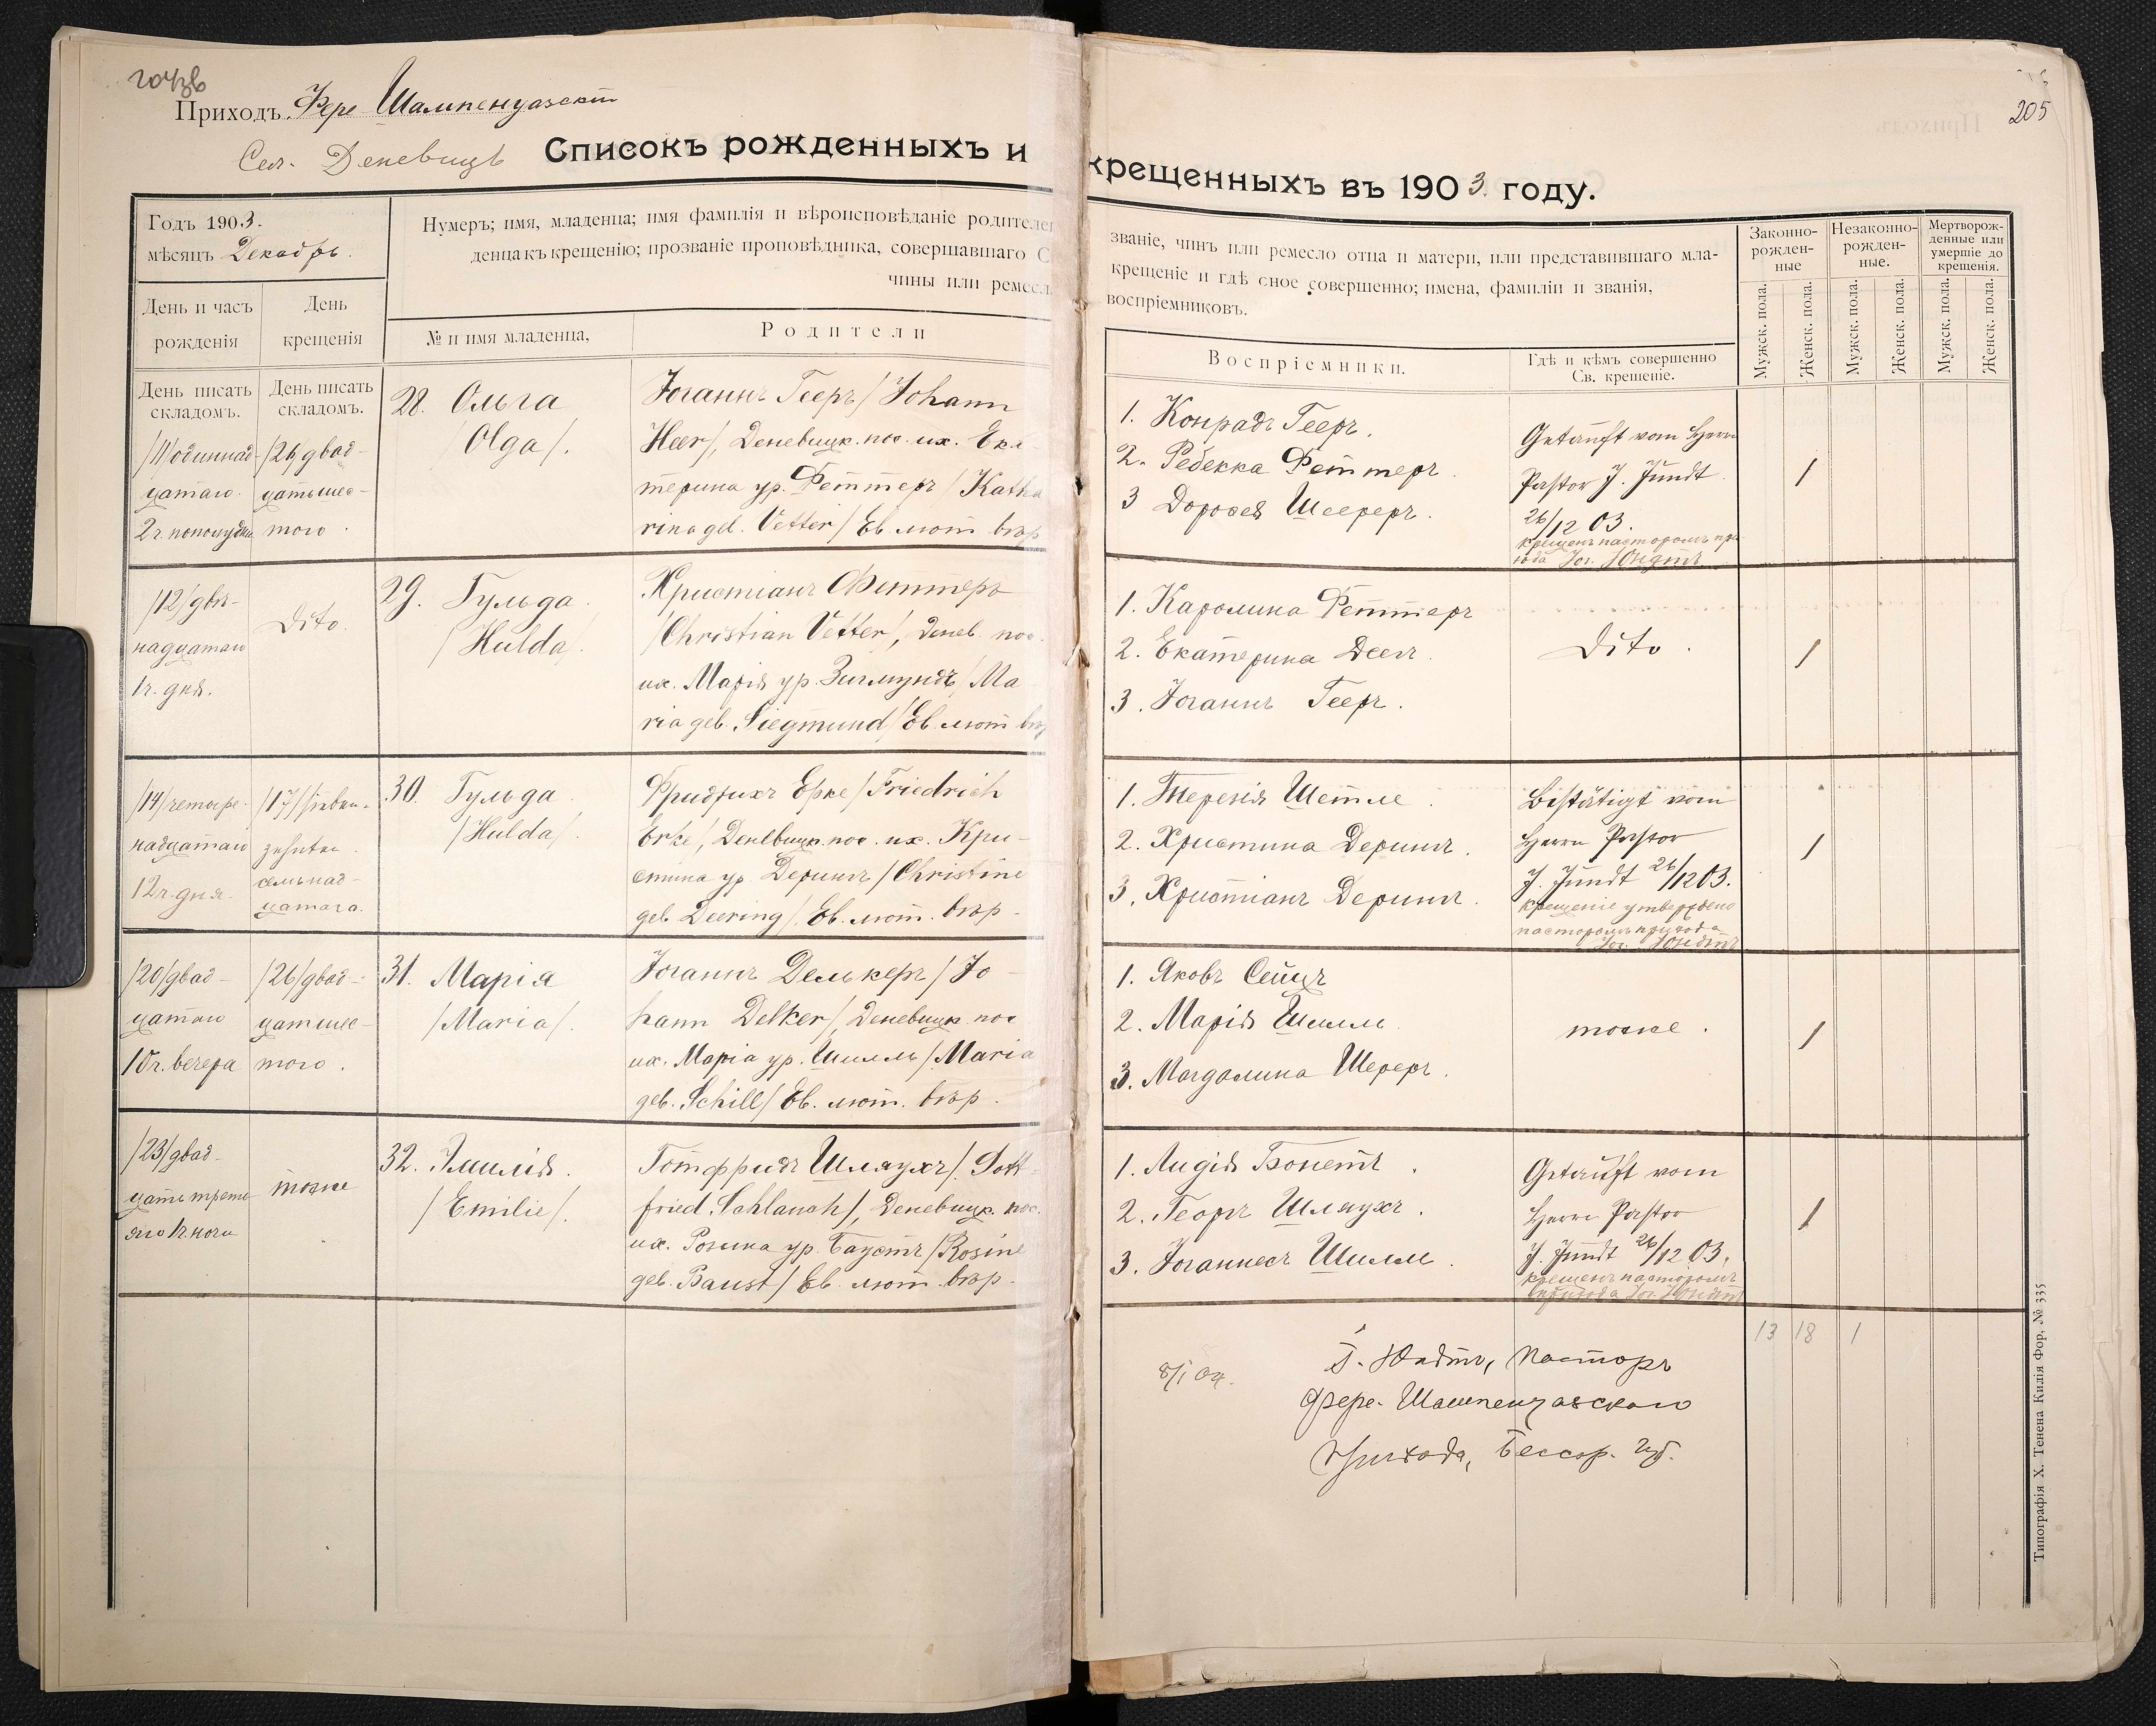 Приходъ Фере Шампенуазскій
Сел. Деневицъ
Списокъ рожденныхъ и
Годъ 1903.
мѣсяцъ Декабрь.
Нумеръ; имя, младенца; имя фамилія и вѣроисповѣданіе родителей
денца къ крещенію; прозваніе проповѣдника, совершавшаго С
чины или ремесл
День и часъ рожденія
День крещенія
№ и имя младенца,
Родители
День писать складомъ.
День писать складомъ.
/11/одиннад-
цатаго
2 ч. пополудни
/26/двад-
цатьшес-
того.
28. Ольга
/Olga/.
Іоганнъ Гееръ/Johann
Heer/, Деневицк. пос. их. Ека
терина ур. Феттеръ/Katha
rina geb. Vetter/Ев. лют. вѣр
/12/двѣ-
надцатаго
1 ч. дня.
Dito.
29. Гульда.
/Hulda/.
Христіанъ Феттеръ
/Christian Vetter/, Денев. пос.
их. Марія ур. Зигмундъ/Ma
ria geb. Siegmund/Ев. лют. вѣр
/14/четыре-
надцатаго
12 ч. дня.
/17/sieben-
zehnten.
семьнад-
цатаго.
30. Гульда
/Hulda/.
Фридрихъ Ерке/Friedrich
Erke/, Деневицк. пос. их. Кри-
стина ур. Дерингъ/Christine
geb. Deering/. Ев. лют. вѣр.
/20/двад-
цатаго
10 ч. вечера
/26/двад-
цатшес-
того.
31. Марія
/Maria/.
Іоганнъ Делькеръ/Jo-
hann Delker/, Деневицк. пос
их. Маріа ур. Шилль/Maria
geb. Schill/Ев. лют. вѣр.
/23/двад-
цать треть-
яго 1 ч. ночи
тоже
32. Эмилія.
/Emilie/.
Готфридъ Шлаухъ/. Gott-
fried Schlauch/, Деневицк. пос.
их. Розина ур. Баустъ/Rosine
geb. Baust/Ев. лют. вѣр.
205
крещенныхъ въ 1903. году.
званіе, чинъ или ремесло отца и матери, или представившаго мла-
крещеніе и гдѣ сное совершенно; имена, фамиліи и званія,
воспріемниковъ.
Воспріемники.
Гдѣ и кѣмъ совершенно Св. крещеніе.
Законно-рожден-ные
Незаконно-рожден-ные.
Мертворож-денные или умершіе до крещенія.
Мужск. пола.
Женск. пола.
Мужск. пола.
Женск. пола.
Мужск. пола.
Женск. пола.
1. Конрадъ Гееръ.
2. Ребекка Феттеръ.
3 Дорофея Шеереръ.
Getauft vom Herrn
Pastor J. Jundt
26/12 03.
крещенъ пасторомъ при
хода Іог. Юндтъ
/
1. Каролина Феттеръ
2. Екатерина Деел.
3. Іоганнъ Гееръ.
Dito.
/
1. Терезія Шетле.
2. Христина Дерингъ.
3. Христіанъ Дерингъ.
Bestätigt vom
Herrn Pastor
J. Jundt 26/12 03.
крещеніе утверждено
пасторомъ прихода
Іог. Юндтъ
/
1. Яковъ Сейцъ
2. Марія Шилль
3. Магдалина Шереръ.
тоже.
/
1. Лидія Бонетъ.
2. Георгъ Шлаухъ.
3. Іоганнесъ Шилле.
Getauft vom
Herrn Pastor
J. Jundt 26/12 03.
крещенъ пасторомъ
прихода Іог. Юндтъ
/
13 18 1
8/I 04.
І. Юндтъ, Пасторъ
Фере-Шампенуазскаго
Прихода, Бессар. губ.
Типографія Х. Тенена Килія Фор. № 335